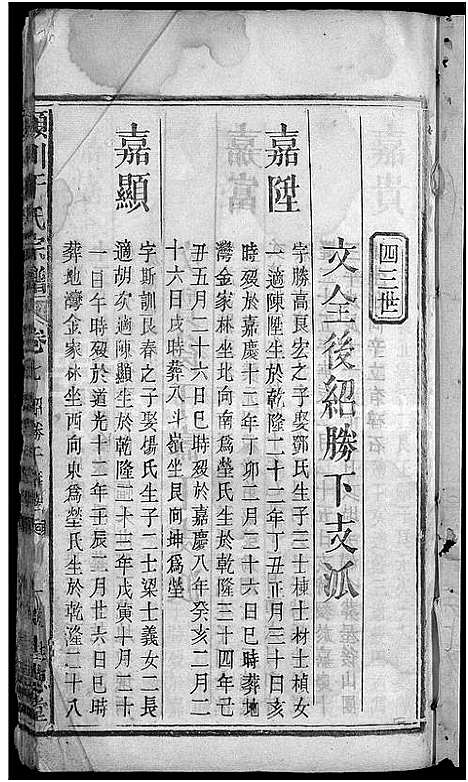 四三世
文全後紹勝下支派
嘉陞
字勝高良宏之子娶鄧氏生子三士棟士材士楨女
一適陳陞生於乾隆二十二年丁丑正月三十日亥
時歿於嘉慶十二年丁卯二月二十六日巳時葬地
灣金家林坐北向南爲塋氏生於乾隆三十四年己
丑五月二十六日巳時歿於嘉慶八年癸亥二月二
十六日戌時葬八斗嶺坐艮向坤爲塋
嘉顯
字斯訓良春之子娶楊氏生子二士梁士義女二長
適胡次適陳顯生於乾隆二十三年戊寅十月二十
一日午時歿於道光十二年壬辰二月廿六日巳時
葬地灣金家林坐西向東爲塋氏生於乾隆二十八
川 氏宗譜 卷七 紹勝下